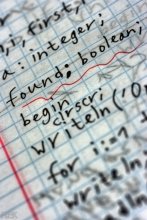 i, first, i
a: integer;
found: boolean;
begin
clrscr;
writeln('O
for i:=1
writeln
dln(